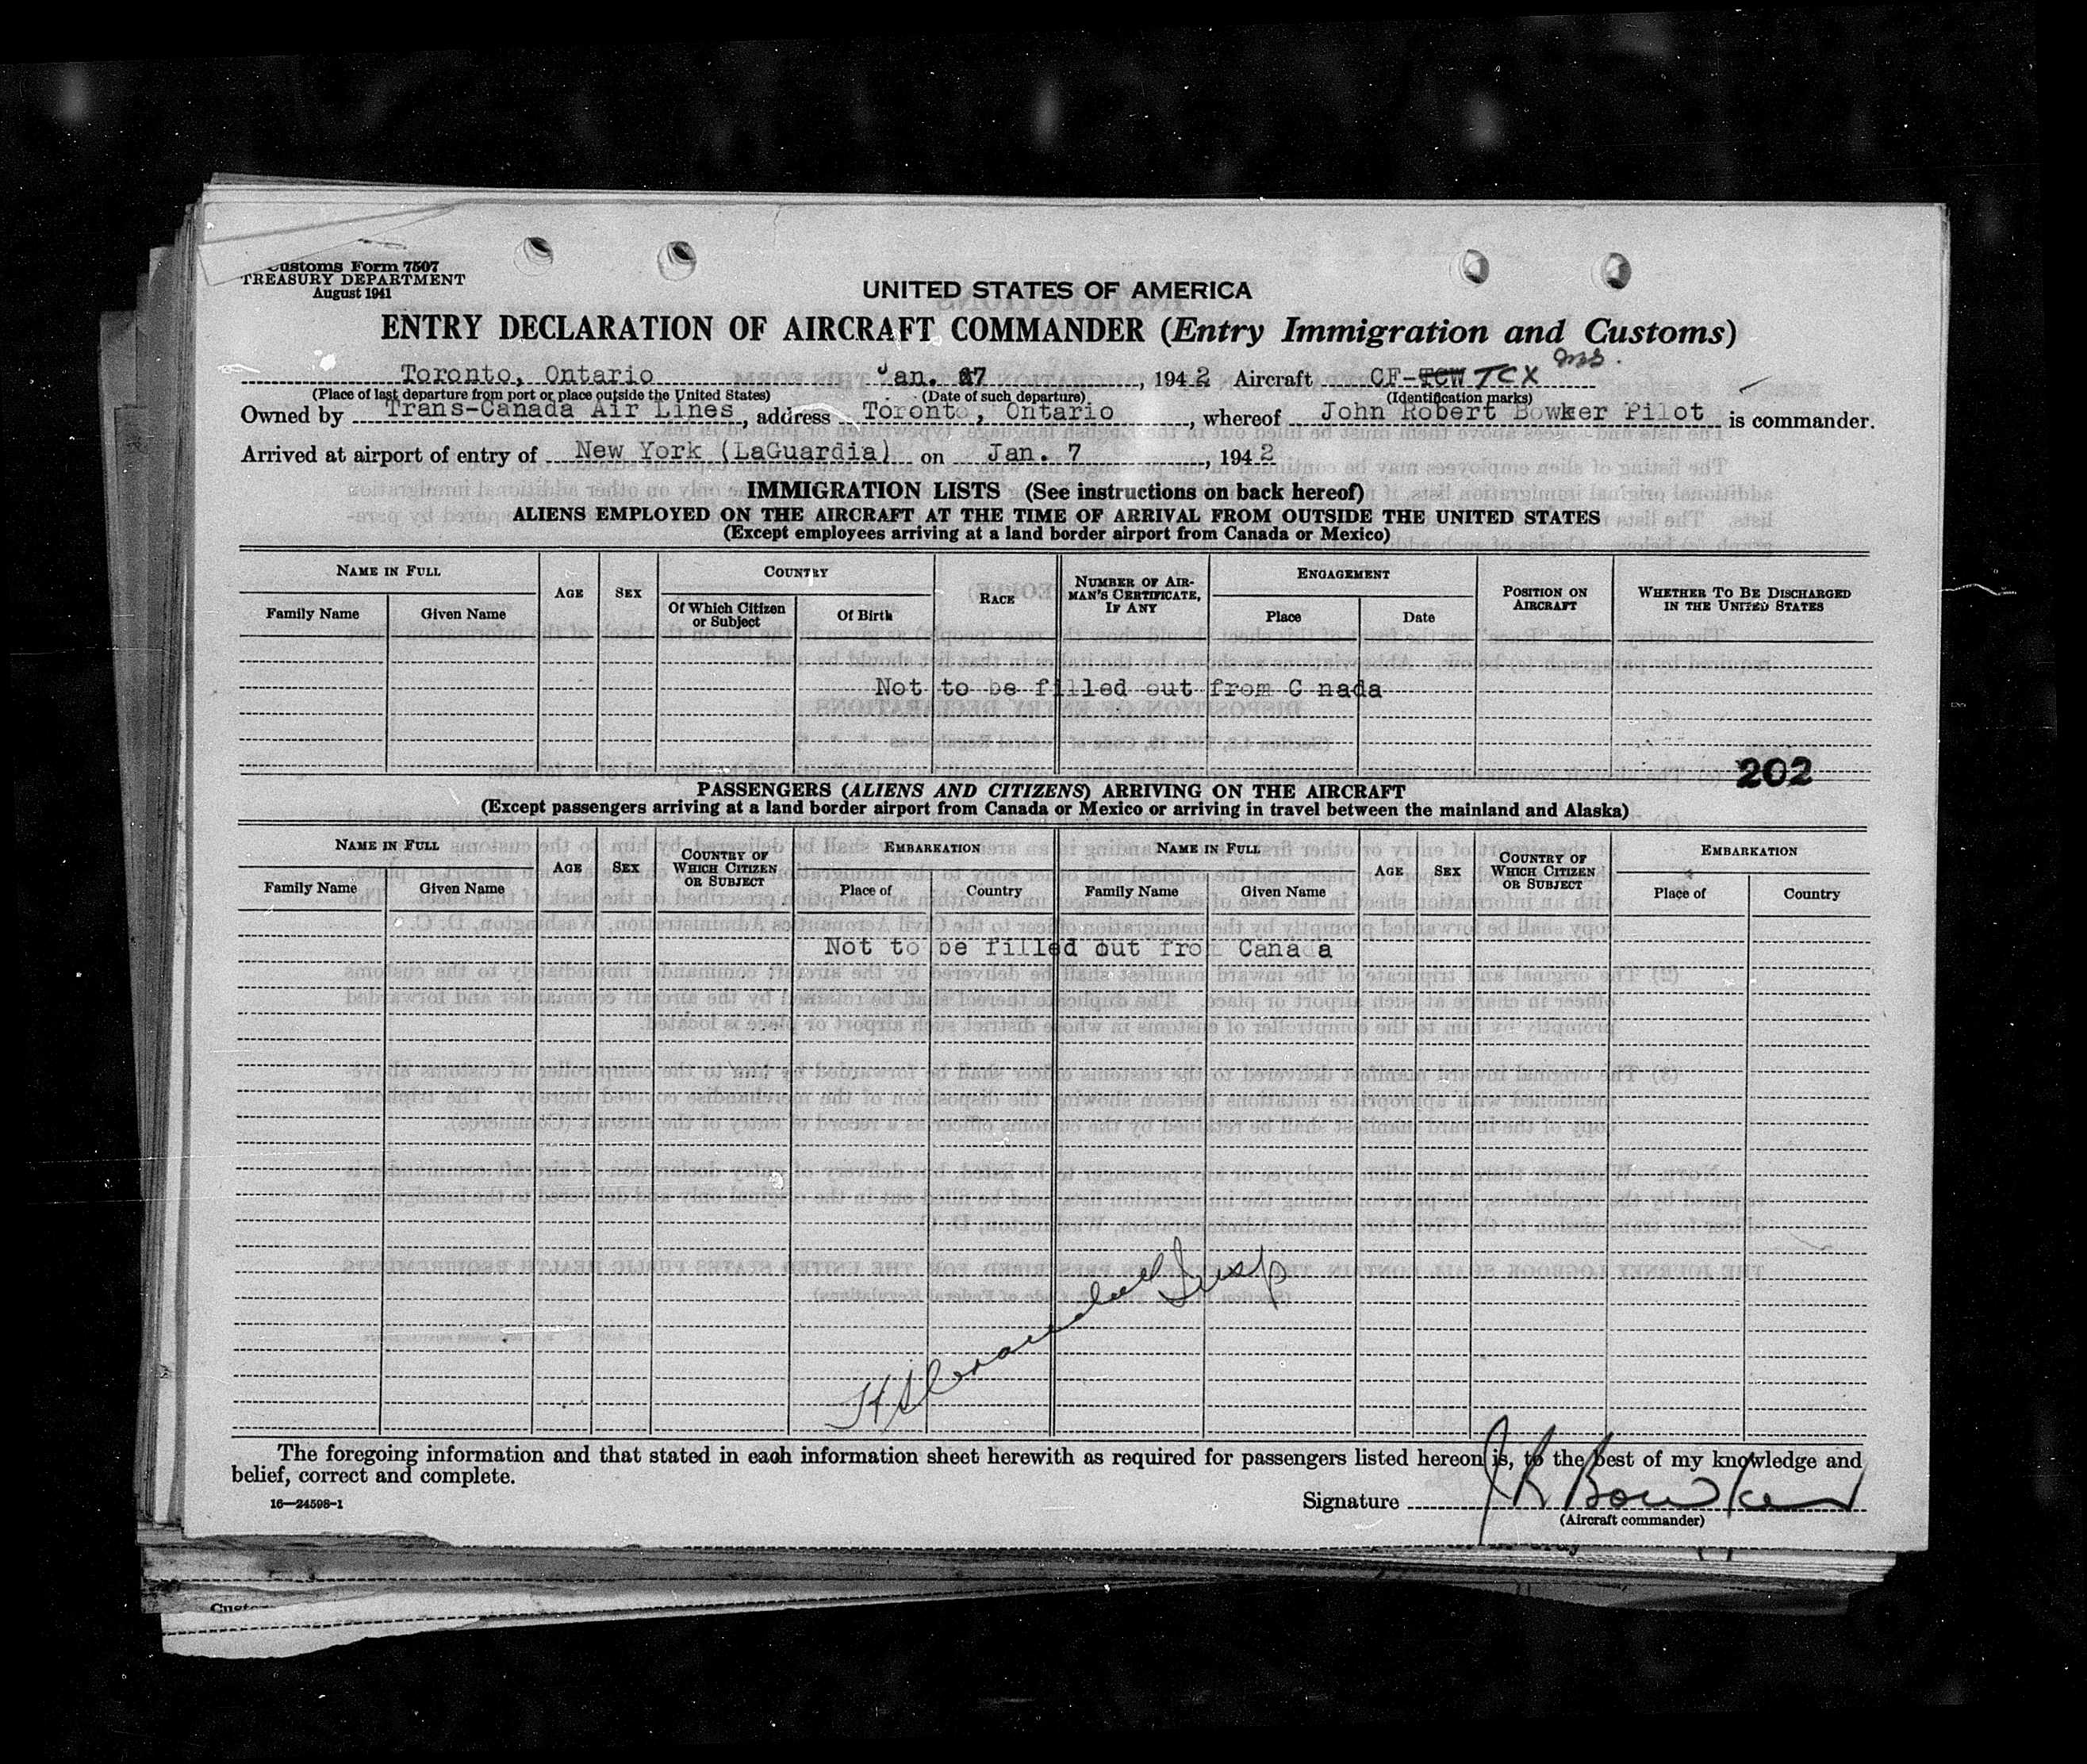 Customs Form 7507
TREASURY DEPARTMENT
August 1941
UNITED STATES OF AMERICA
ENTRY DECLARATION OF AIRCRAFT COMMANDER (Entry Immigration and Customs)
Toronto, Ontario Jan. 7, 1942 Aircraft CF-TCW TCX
(Place of last departure from port or place outside the United States) (Date of such departure) (Identification marks)
Owned by Trans-Canada Air Lines, address Toronto, Ontario, whereof John Robert Bowker Pilot is commander.
Arrived at airport of entry of New York (LaGuardia) on Jan. 7, 1942
IMMIGRATION LISTS (See instructions on back hereof)
ALIENS EMPLOYED ON THE AIRCRAFT AT THE TIME OF ARRIVAL FROM OUTSIDE THE UNITED STATES
(Except employees arriving at a land border airport from Canada or Mexico)
NAME IN FULL AGE SEX COUNTRY RACE NUMBER OF AIR-MAN'S CERTIFICATE, IF ANY ENGAGEMENT POSITION ON AIRCRAFT WHETHER TO BE DISCHARGED IN THE UNITED STATES
Family Name Given Name Of Which Citizen or Subject Of Birth Place Date
Not to be filled out from C nada
202
PASSENGERS (ALIENS AND CITIZENS) ARRIVING ON THE AIRCRAFT
(Except passengers arriving at a land border airport from Canada or Mexico or arriving in travel between the mainland and Alaska)
NAME IN FULL AGE SEX COUNTRY OF WHICH CITIZEN OR SUBJECT EMBARKATION NAME IN FULL AGE SEX COUNTRY OF WHICH CITIZEN OR SUBJECT EMBARKATION
Family Name Given Name Place of Country Family Name Given Name Place of Country
Not to be filled out fro Canada
The foregoing information and that stated in each information sheet herewith as required for passengers listed hereon is, to the best of my knowledge and
belief, correct and complete.
16—24598-1
Signature J R Bowker
(Aircraft commander)